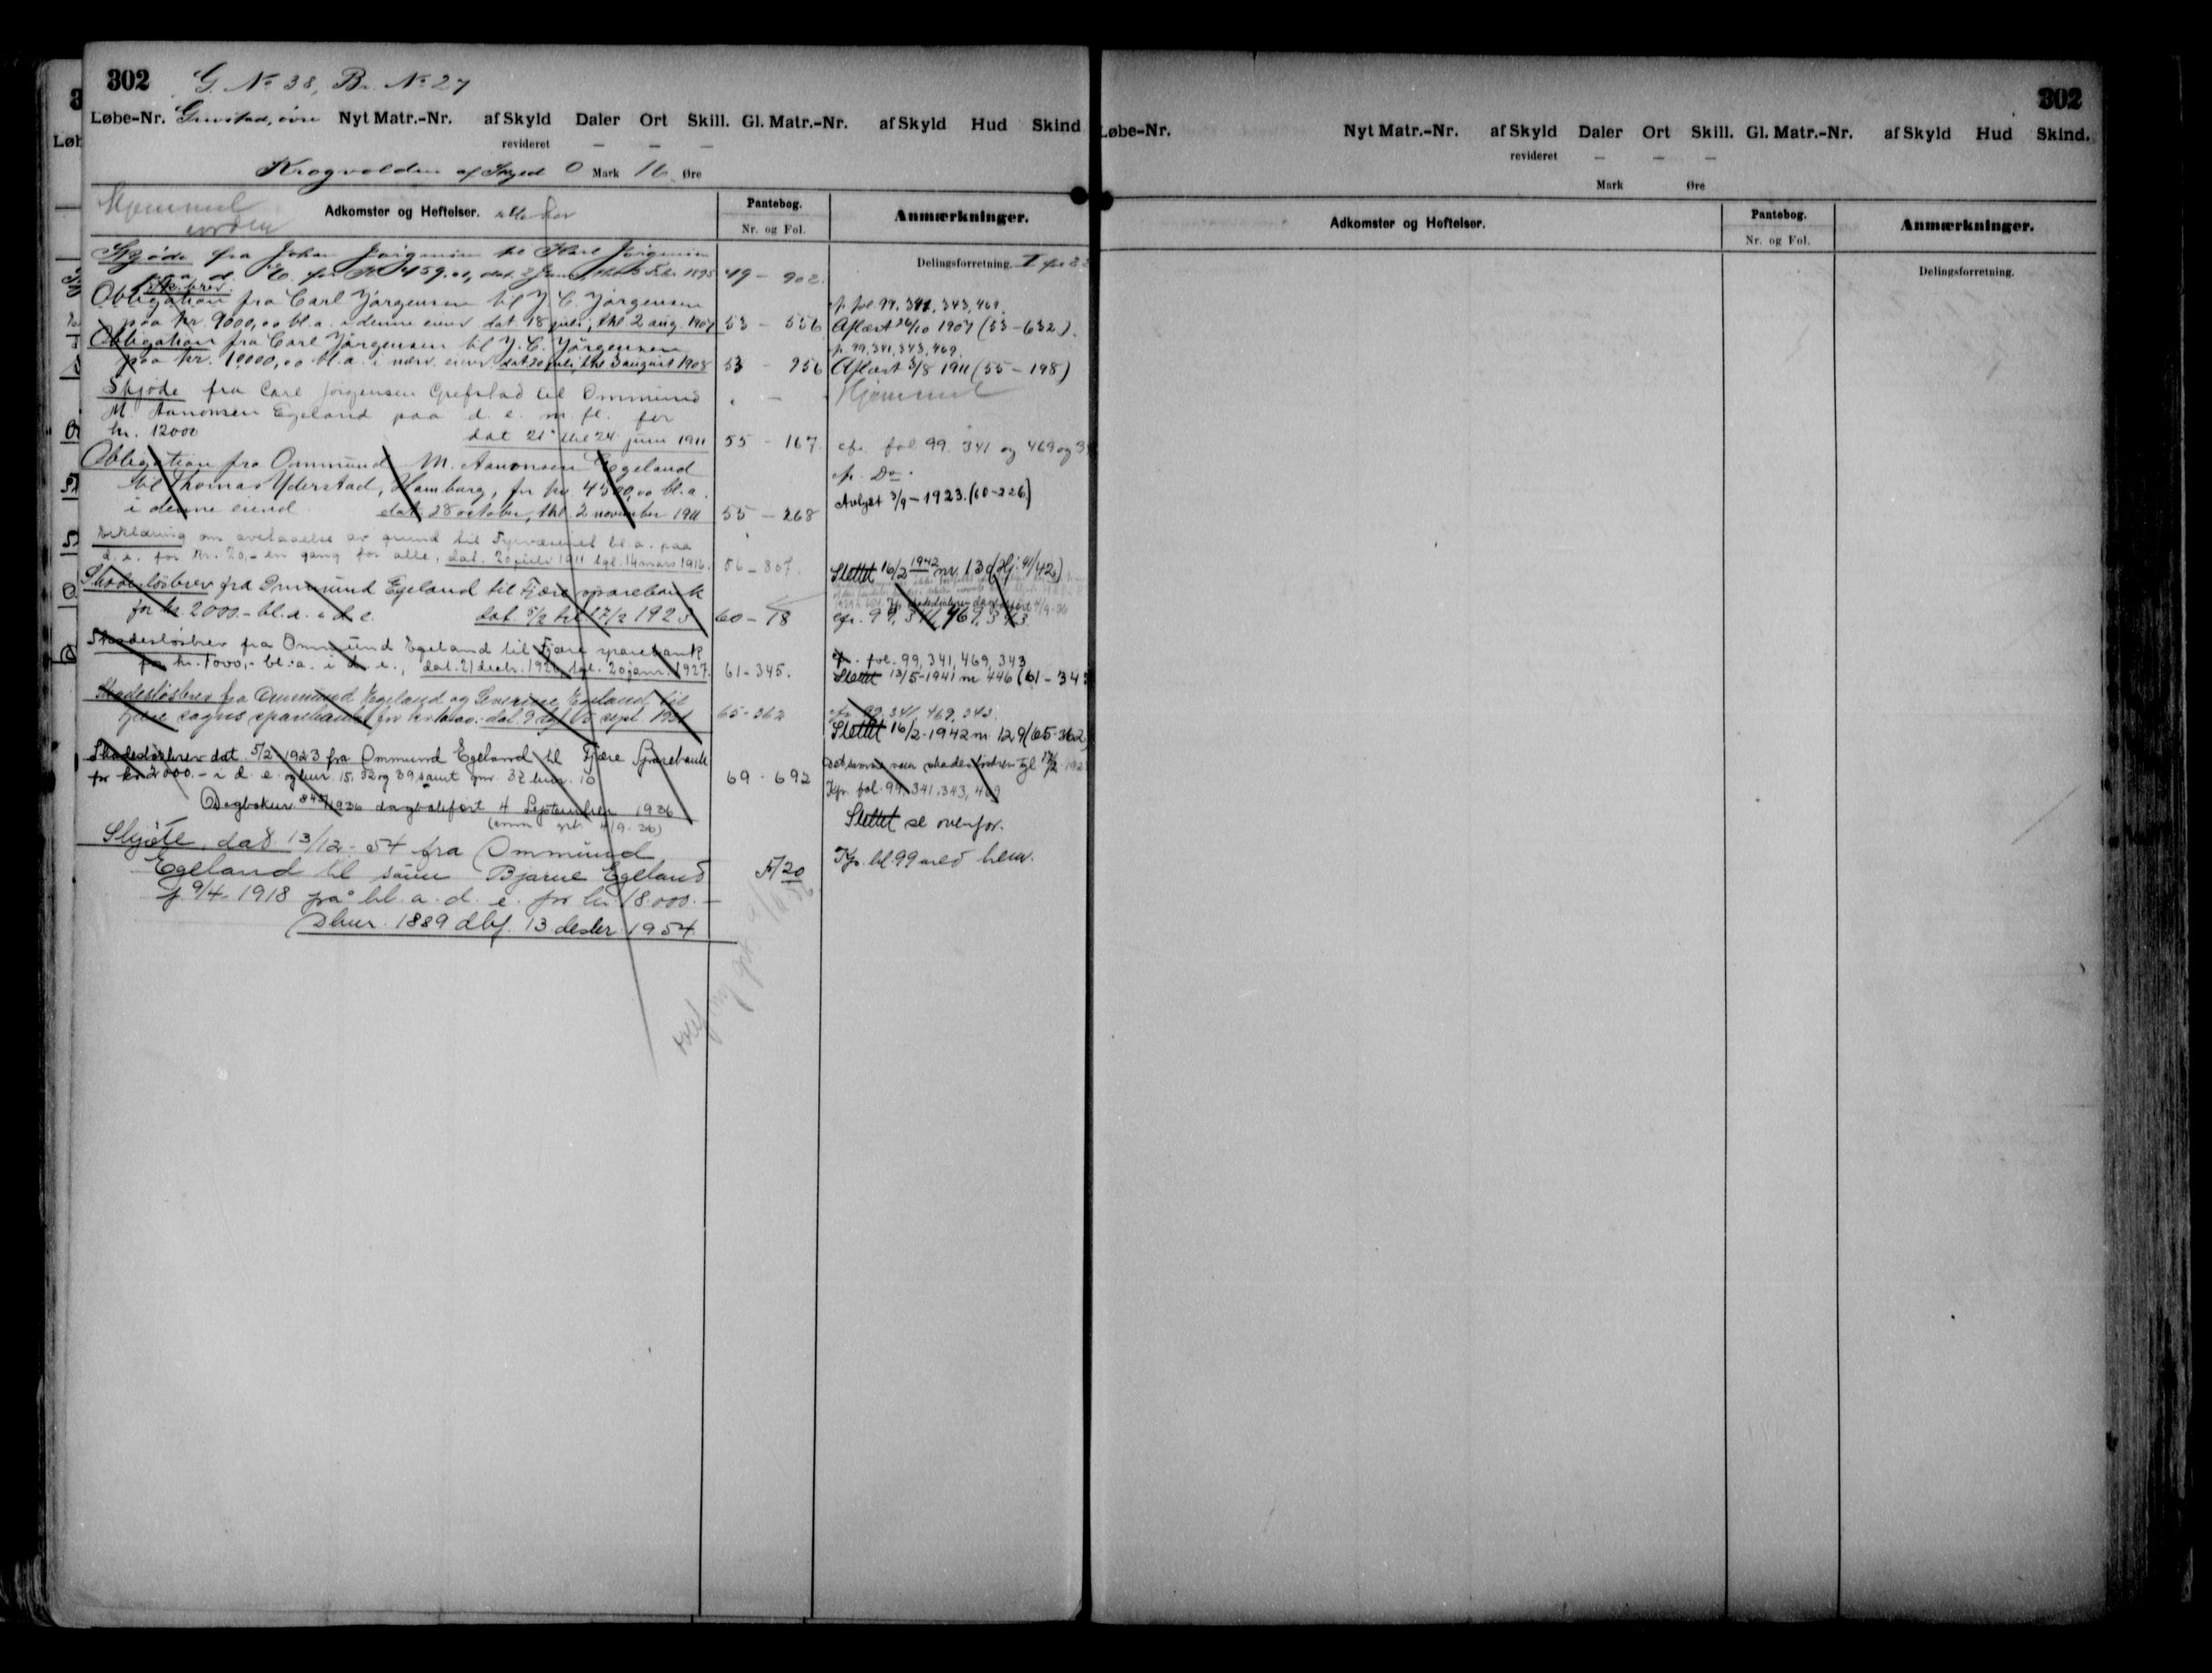 302 G. No 38, Br. No 27
Løbe-Nr. Grevstad, øvre Nyt Matr.-Nr. af Skyld Daler Ort Skill. Gl. Matr.-Nr. af Skyld Hud Skind
revideret — — —
Krogvolden af Skyld 0 Mark 16 Øre
Hjemmel
Adkomster og Heftelser.
Pantebog.
Nr. og Fol.
Anmærkninger.
Delingsforretning. I
Skjøde fra Johan Jørgensen til Karl Jørgensen
paa d. E. for Kr 459.00, dat. 2 Juni, 1895 49 - 902.
Obligation fra Carl Jørgensen til J. C. Jørgensen fol. 99, 341, 343, 469.
paa kr. 9000,00 bl. a. i denne eiend. dat. 18 juli, thl. 2 aug. 1907 53 - 556 Aflæst 26/10 1907 (53-632).
Obligation fra Carl Jørgensen til J. C. Jørgensen 99, 341, 343, 469.
paa kr. 10000,00 bl. a. i nærv. eiend. dat 20 juli, thl 3 august 1908 53 - 956 Aflæst 3/8 1911 (55-198)
Skjøde fra Carl Jørgensen Grefstad til Ommund Hjemmel
M. Aanonsen Egeland paa d. e. m. fl. for
kr. 12000 dat 21 thl 24 juni 1911 55 - 167. cfr. fol 99. 341 og 469 og
Obligation fra Ommund M. Aanonsen Egeland cfr. Do.
til Thomas Yderstad, Hamburg, for kr. 4500,00 bl. a.
i denne eiend. dat. 28 october, thl. 2 november 1911 55 - 268 Avlyst 3/9-1923. (60-226)
Erklæring om avstaaelse av grund til Veivæsenet bl. a. paa
d. e. for kr. 20,- en gang for alle, dat. 20 juli 1911 tgl. 14 mars 1916. 56 - 807.
Slettet 16/2 1942 nr. 130 (Hj: 41/42)
Skadesløsbrev fra Ommund Egeland til Fjære sparebank
for kr. 2000.- bl. a. i d. e. dat. 5/2 thl 17/2 1923 60 - 78 cfr. 99, 341, 469, 343.
Skadesløsbrev fra Ommund Egeland til Fjære sparebank
for kr. 1000,- bl. a. i d. e., dat. 21 decbr. 1926 tgl. 20 jan. 1927. 61 - 345. cfr. fol. 99, 341, 469, 343
Slettet 13/5-1941 nr 446 (61-345
Skadesløsbrev fra Ommund Egeland og Severine Egeland til
Fjære sogns sparebank dat. 9 tgl 15 sept. 1931 65-362 cfr. 99, 341, 469, 343.
Slettet 16/2-1942 nr 129 (65-362)
Skadesløsbrev dat. 5/2 1923 fra Ommund Egeland til Fjære Sparebank
for kr 2000.- i d. e. og bnr. 15, 32 og 39 samt gnr. 37 bnr. 10 69 - 692 Det samme som skadesløsbrev tgl 17/2 192
Dagboknr. 845/1936 dagbokført 4 September 1936 Kfr. fol. 99, 341, 343, 469
Slettet se ovenfor.
Skjøte, dat 13/12-54 fra Ommund
Egeland til sønn Bjarne Egeland 5/20 Kfr. bl 99 med henv.
f. 9/4 1918 på bl. a. d. e. for kr. 18.000.-
Dbnr. 1889 dbf. 13 desbr. 1954.
302
Løbe-Nr. Nyt Matr.-Nr. af Skyld Daler Ort Skill. Gl. Matr.-Nr. af Skyld Hud Skind.
revideret — — —
Mark Øre
Adkomster og Heftelser.
Pantebog.
Nr. og Fol.
Anmærkninger.
Delingsforretning.